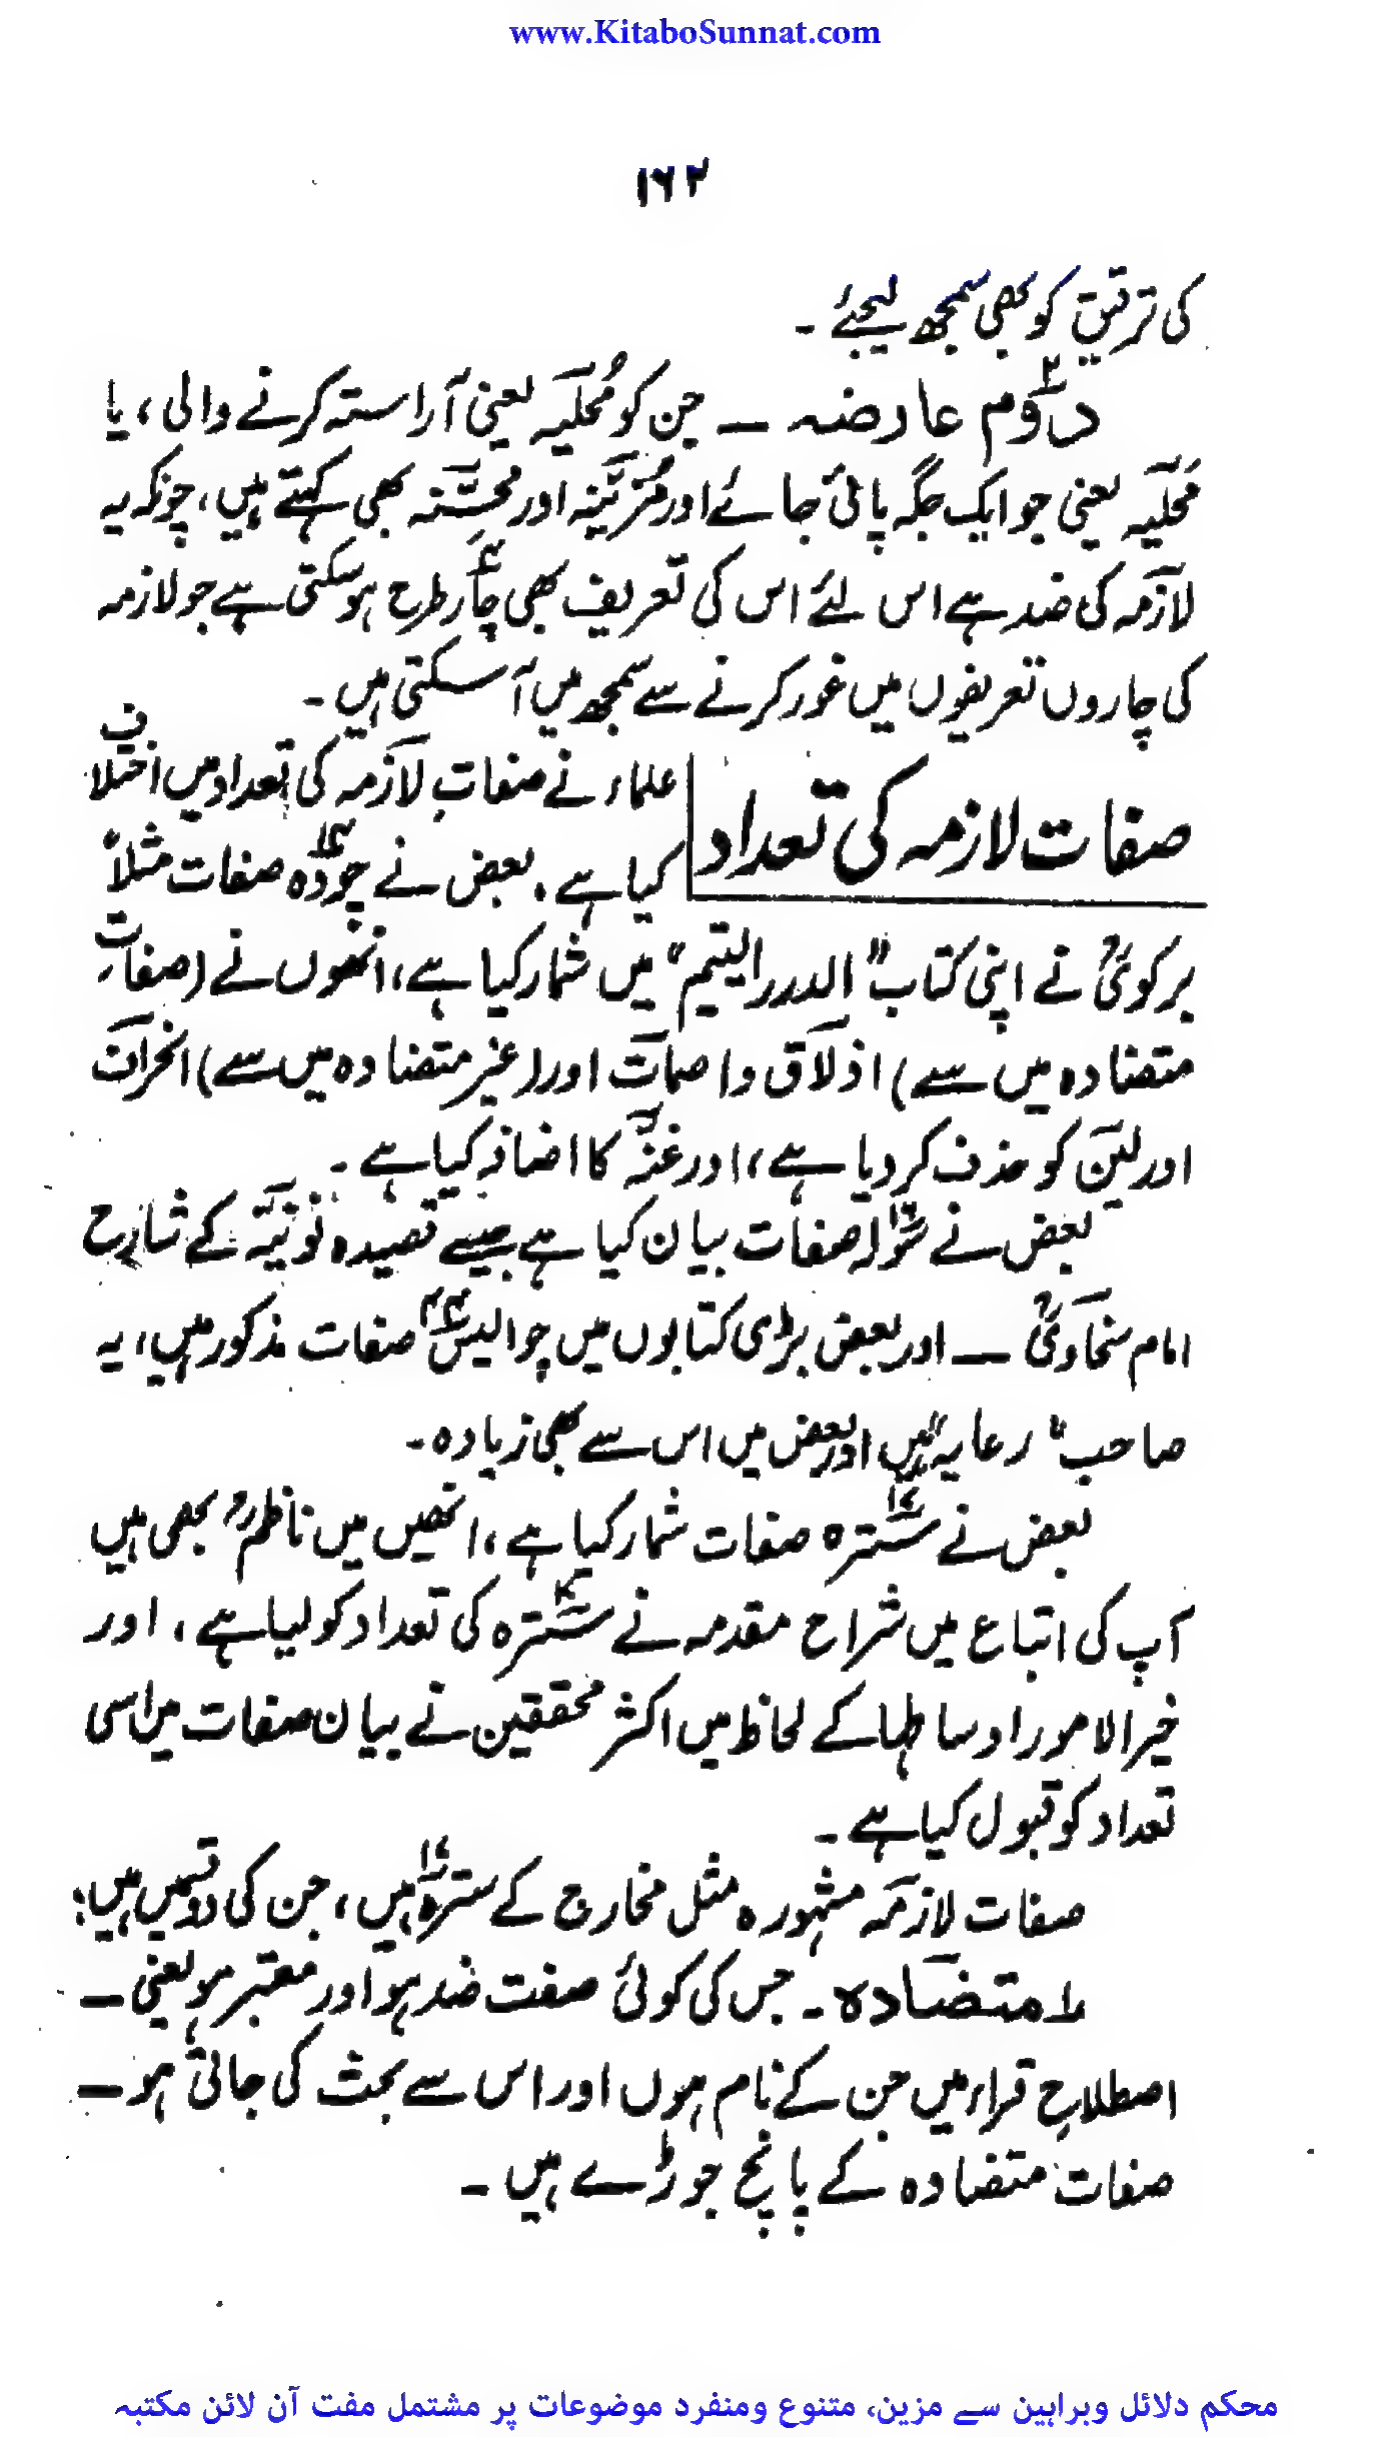 www.KitaboSunnat.com
۱۶۲
کی ترقیق کو بھی سمجھ لیجئے ۔
دوم۲ عارضہ ـــ جن کو مُحلیہ یعنی آراستہ کرنے والی، یا
مَحلیہ یعنی جو ایک جگہ پائی جائے اور مُزیّنہ اور محسّنہ بھی کہتے ہیں، چونکہ یہ
لازمہ کی ضد ہے اس لئے اس کی تعریف بھی چار۴ طرح ہوسکتی ہے جو لازمہ
کی چاروں تعریفوں میں غور کرنے سے سمجھ میں آسکتی ہیں ۔
صفات لازمہ کی تعداد
علماء نے صفاتِ لازمہ کی تعداد میں اختلاف
کیا ہے ۔ بعض نے چودہ۱۴ صفات مثلاً
برکویؒ نے اپنی کتاب "الدرر الیتیم" میں شمار کیا ہے، انھوں نے (صفات
متضادہ میں سے) اذلاق واصمات اور (غیر متضادہ میں سے) انحراف
اور لین کو حذف کر دیا ہے، اور غنہ کا اضافہ کیا ہے ۔
بعض نے سولہ۱۶ صفات بیان کیا ہے جیسے قصیدہ نونیہ کے شارح
امام سخاویؒ ـــ اور بعض بڑی کتابوں میں چوالیس۴۴ صفات مذکور ہیں، یہ
صاحب "رعایہ" ہیں اور بعض میں اس سے بھی زیادہ ۔
بعض نے سترہ۱۷ صفات شمار کیا ہے، انھیں میں ناظمؒ بھی ہیں
آپ کی اتباع میں شراح مقدمہ نے سترہ۱۷ کی تعداد کو لیا ہے، اور
خیر الامور اوساطہا کے لحاظ میں اکثر محققین نے بیان صفات میں اسی
تعداد کو قبول کیا ہے ۔
صفات لازمہ مشہورہ مثل مخارج کے سترہ۱۷ ہیں، جن کی دو قسمیں ہیں:
۱ متضادہ ۔ جس کی کوئی صفت ضد ہو اور معتبر ہو یعنی ـــ
اصطلاحِ قراء میں جن کے نام ہوں اور اس سے بحث کی جاتی ہو ـــ
صفات متضادہ کے پانچ جوڑے ہیں ۔
محکم دلائل وبراہین سے مزین، متنوع ومنفرد موضوعات پر مشتمل مفت آن لائن مکتبہ